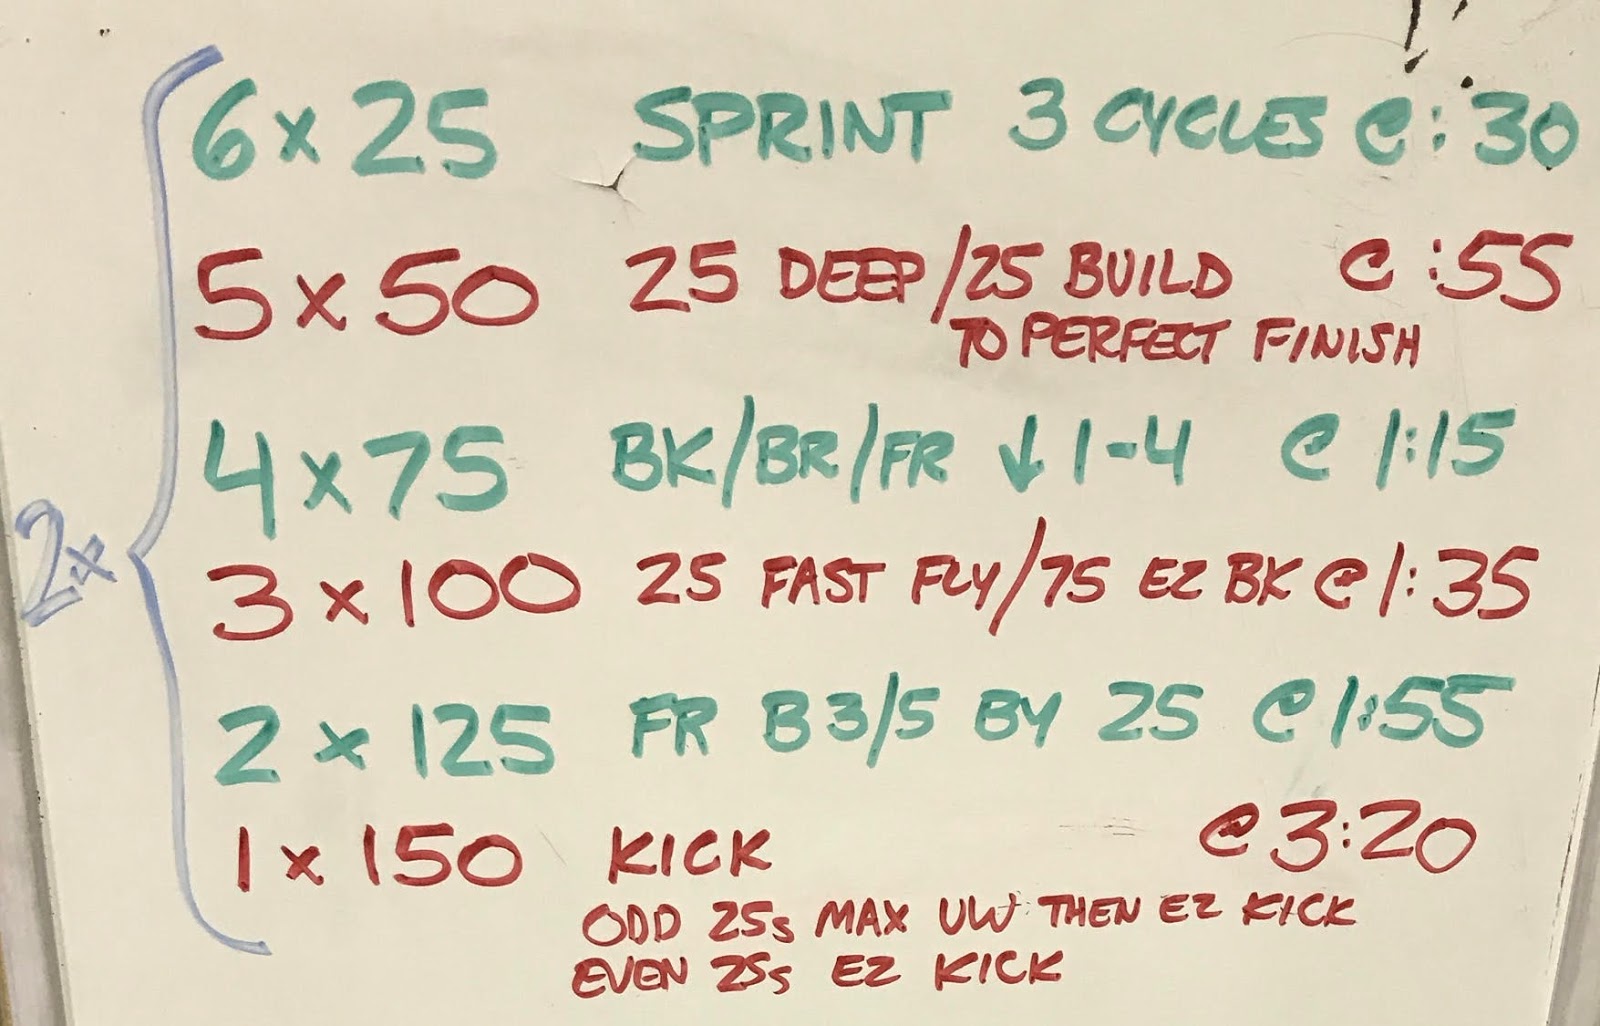 2x
6 x 25 SPRINT 3 CYCLES @ :30
5 x 50 25 DEEP/25 BUILD @ :55
TO PERFECT FINISH
4 x 75 BK/BR/FR ↓ 1-4 @ 1:15
3 x 100 25 FAST FLY/75 EZ BK @ 1:35
2 x 125 FR B 3/5 BY 25 @ 1:55
1 x 150 KICK @ 3:20
ODD 25s MAX UW THEN EZ KICK
EVEN 25s EZ KICK